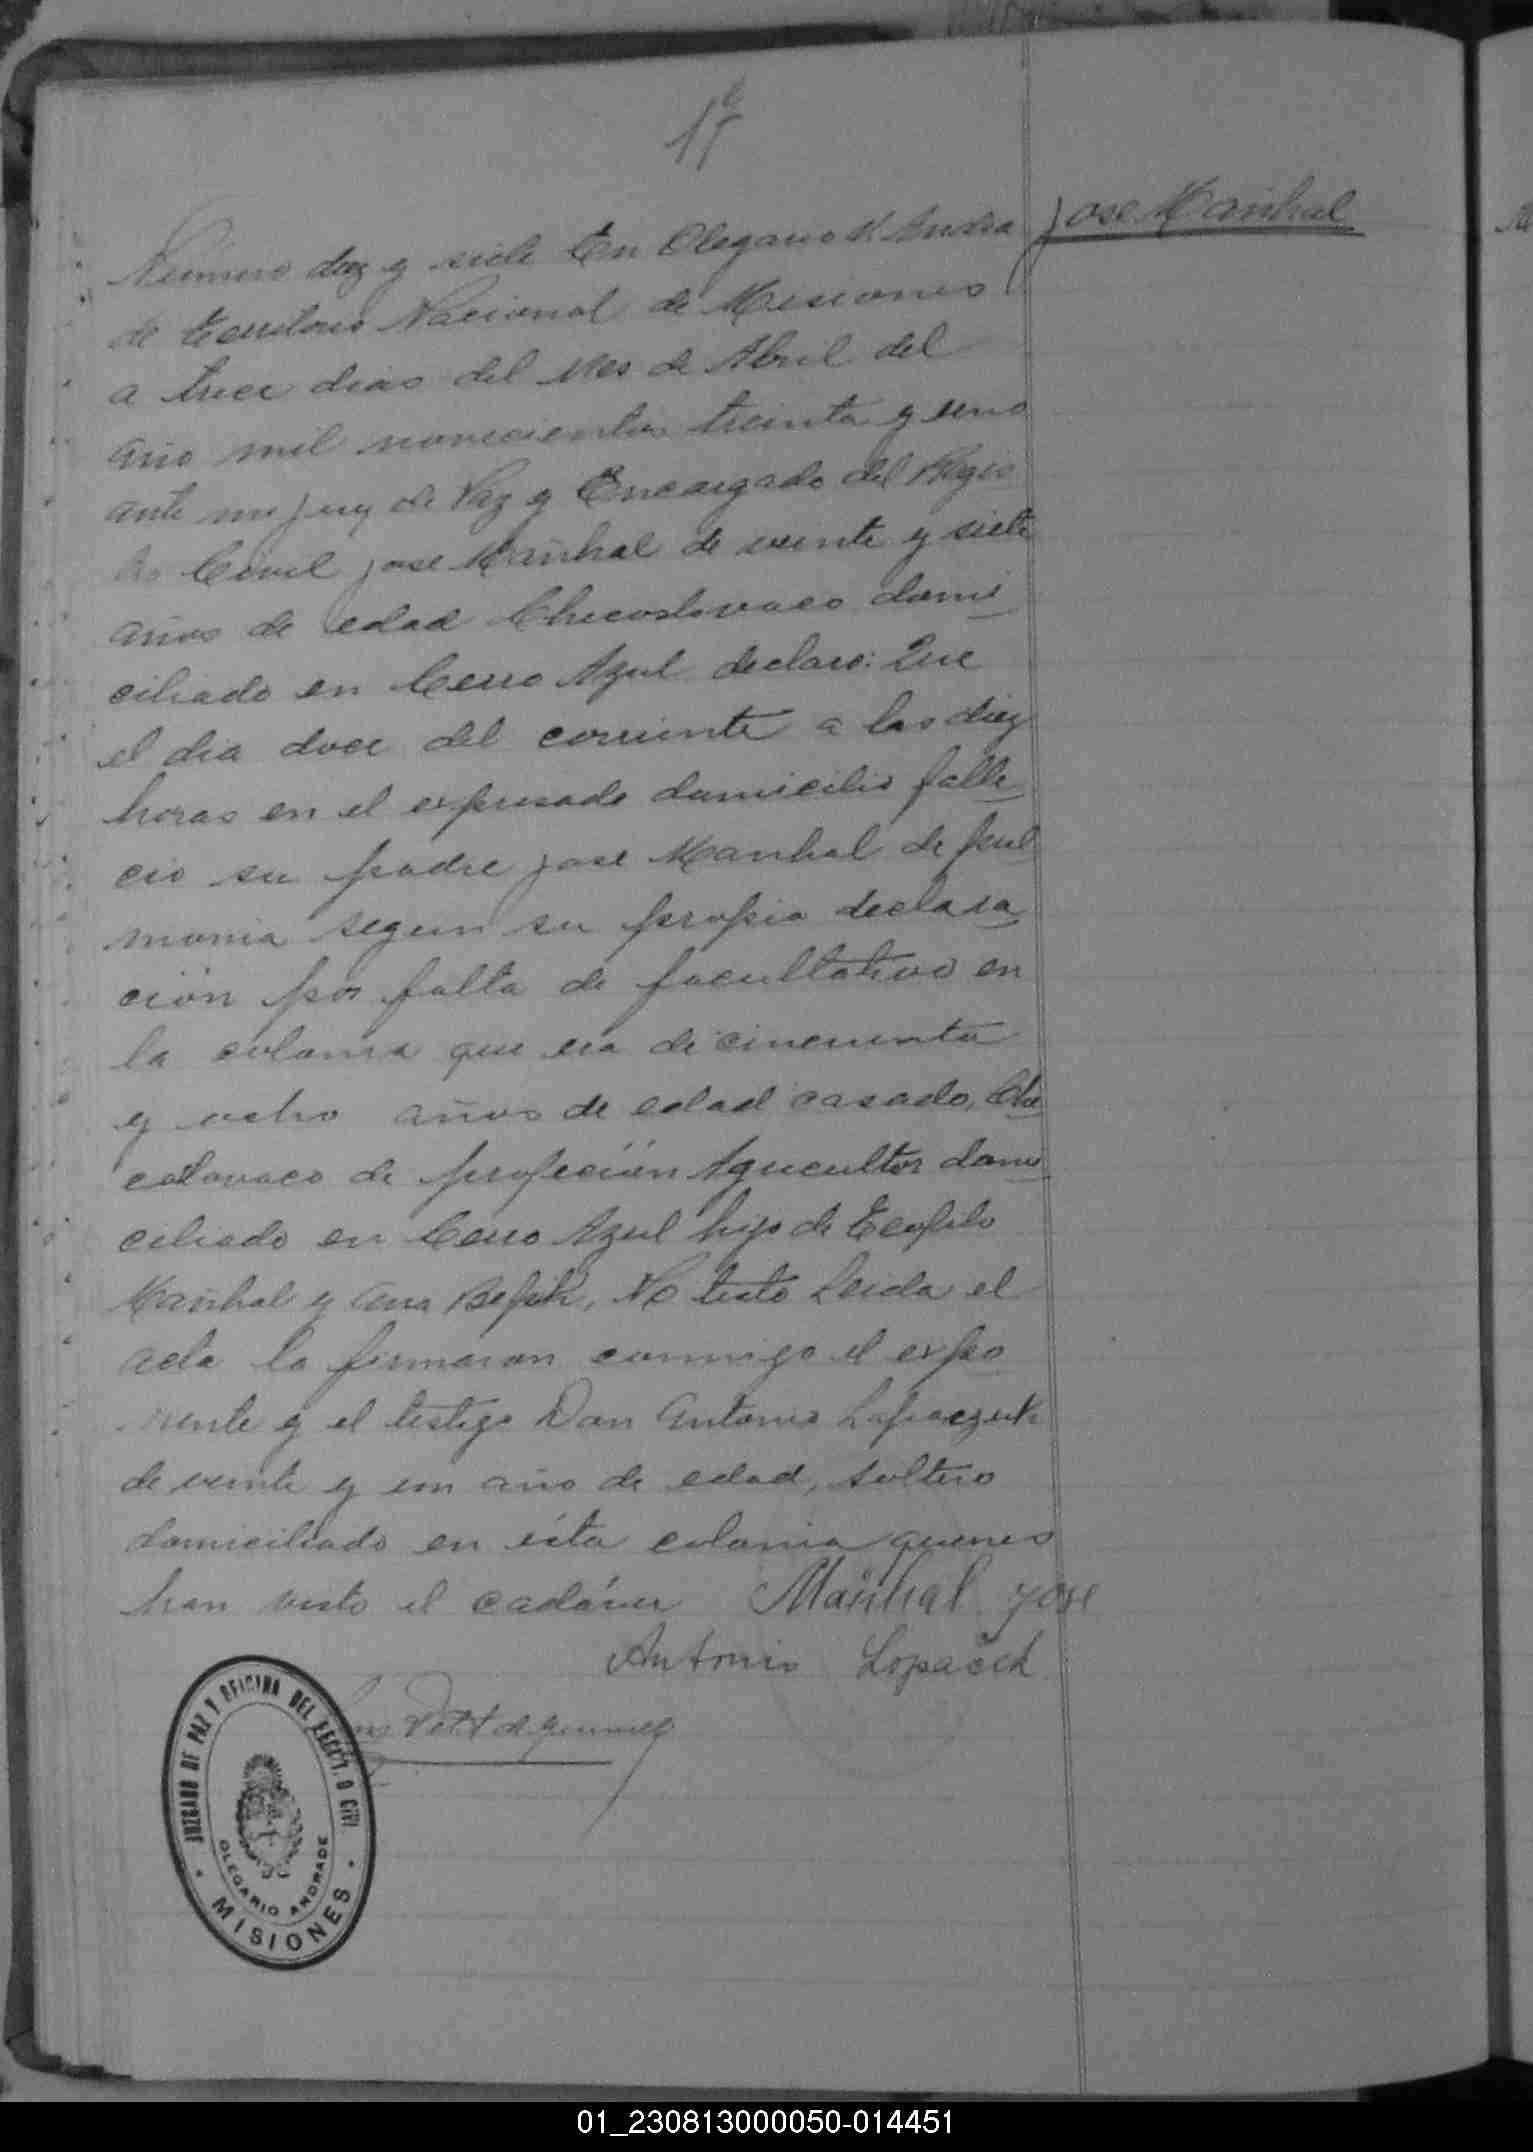 17
Jose Mañhal
Número diez y siete En Olegario V Andra
de Territorio Nacional de Misiones
a trece dias del mes de Abril del
año mil novecientos treinta y uno
ante mi Juez de Paz y Encargado del Regis
tro Civil Jose Mañhal de veinte y siete
años de edad Checoslovaco domi
ciliado en Cerro Azul declaro: Que
el dia doce del corriente a las diez
horas en el expresado domicilio falle
cio su padre Jose Manhal de pul
monia segun su propia declara
ción por falta de facultativo en
la colonia que era de cincuenta
y ocho años de edad casado, Che
coslovaco de profeción Agricultor domi
ciliado en Cerro Azul hijo de Teofilo
Mañhal y Ana, No testo Leida el
acta la firmaron conmigo el expo
nente y el testigo Don Antonio Lapaczuk
de veinte y un año de edad, soltero
domiciliado en ésta colonia quienes
han visto el cadáver Mañhal Jose
Antonio Lopačuk
JUZGADO DE PAZ Y OFICINA DEL REGIST. O CIVI
OLEGARIO ANDRADE
MISIONES
01_230813000050-014451